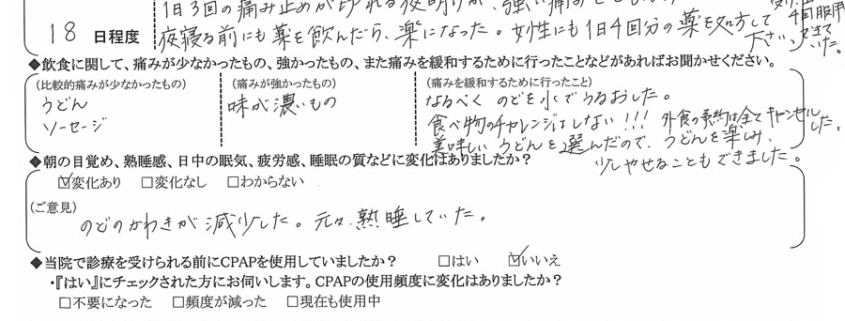 1日3回の痛み止めが切れる夜明けが、強い痛み
18 日程度
夜寝る前にも薬を飲んだら、楽になった。女性にも1日4回分の薬を処方して下さい。
4回服用
できて
いた。
◆飲食に関して、痛みが少なかったもの、強かったもの、また痛みを緩和するために行ったことなどがあればお聞かせください。
(比較的痛みが少なかったもの)
うどん
ソーセージ
(痛みが強かったもの)
味が濃いもの
(痛みを緩和するために行ったこと)
なるべく のどを水でうるおした。
食べ物のチャレンジはしない!!! 外食の予約は全てキャンセルした。
美味しい うどんを選んだので、うどんを楽しみ、
少しやせることもできました。
◆朝の目覚め、熟睡感、日中の眠気、疲労感、睡眠の質などに変化はありましたか?
☑変化あり □変化なし □わからない
(ご意見)
のどのかわきが減少した。元々、熟睡していた。
◆当院で診療を受けられる前にCPAPを使用していましたか? □はい ☑いいえ
・『はい』にチェックされた方にお伺いします。CPAPの使用頻度に変化はありましたか?
□不要になった □頻度が減った □現在も使用中